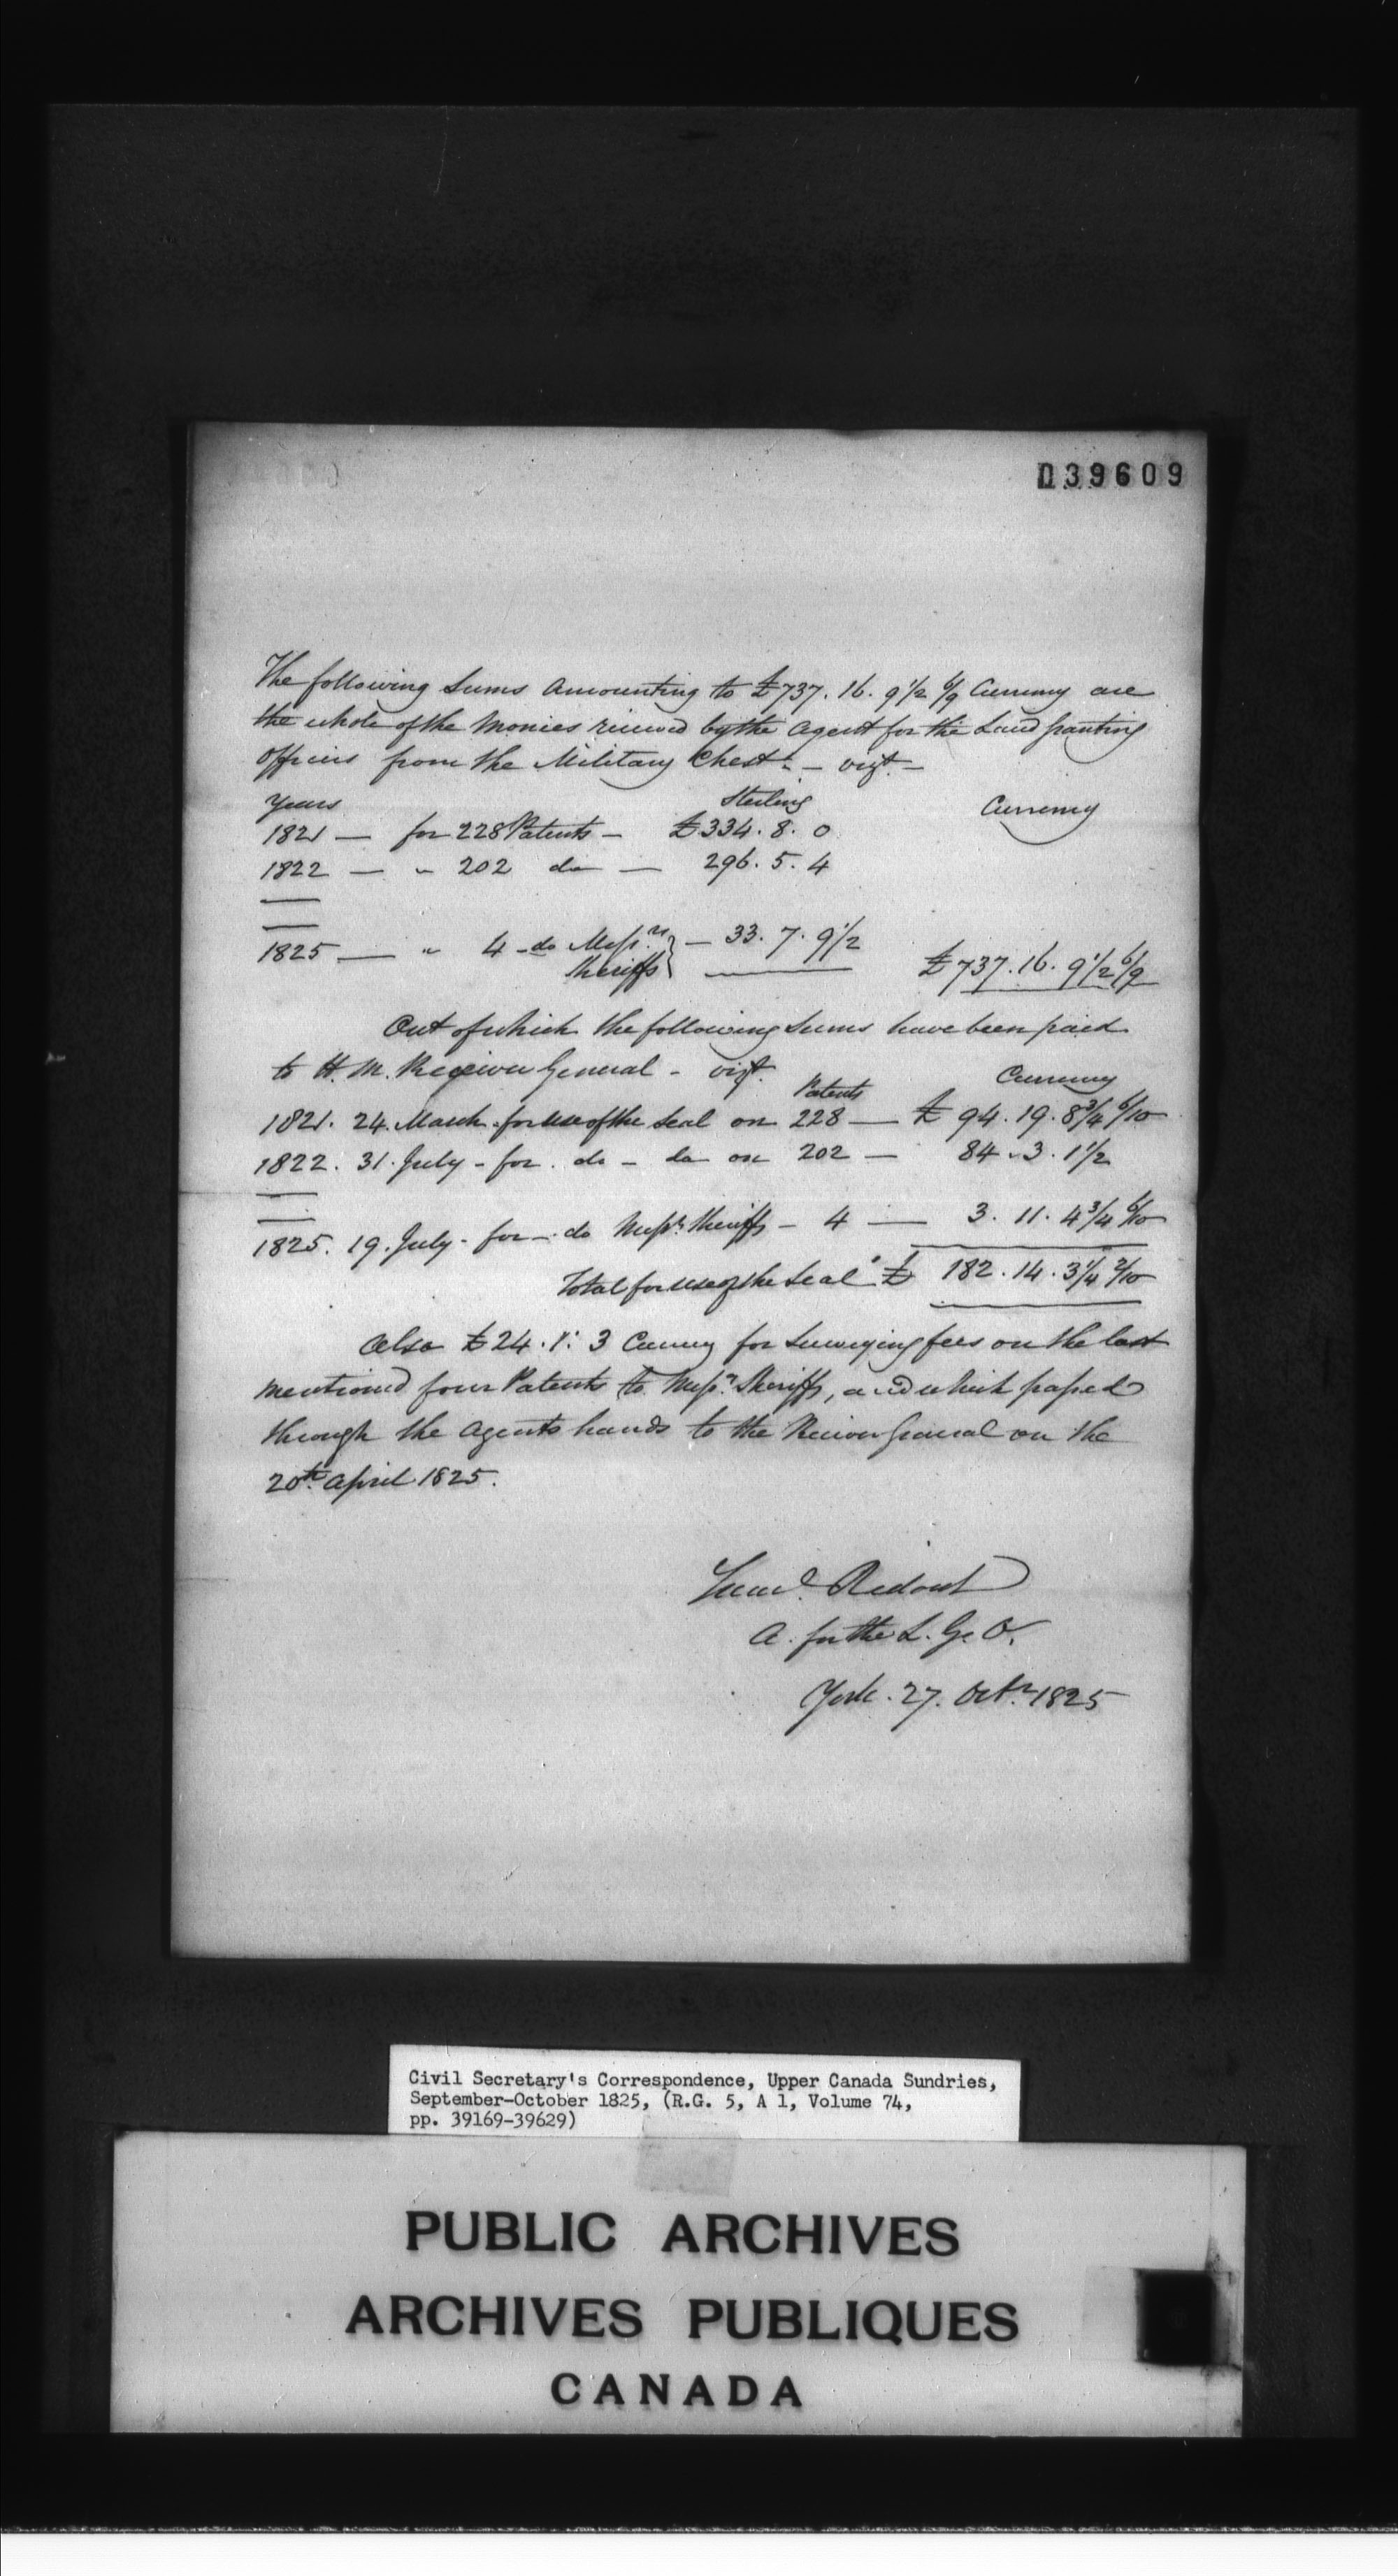 039609
The following Sums amounting to £737. 16. 9 1/2 6/9 Currency are
the whole of the Monies received by the Agent for the Land granting
Officers from the Military Chest. — vizt. —
Years Sterling Currency
1821 — for 228 Patents — £334. 8. 0
1822 — " 202 do — 296. 5. 4
1825 — " 4 - do Messrs. } — 33. 7. 9 1/2
Sheriffs £737. 16. 9 1/2 6/9
Out of which the following Sums have been paid
to H. M. Receiver General - vizt.
Patents Currency
1821. 24. March - for use of the Seal on 228 — £ 94. 19. 8 3/4 6/10
1822. 31. July - for. do - do on 202 — 84. 3. 1 1/2
1825. 19. July - for - do Messrs. Sheriffs - 4 — 3. 11. 4 3/4 6/10
Total for use of the Seal £ 182. 14. 3 1/4 2/10
Also £24. 1. 3 Curncy for Surveying fees on the last
mentioned four Patents to Messrs. Sheriffs, and which passed
through the Agents hands to the Receiver General on the
20th. April 1825.
Ridout
A. for the L. G. O.
York. 27. Octr. 1825
Civil Secretary's Correspondence, Upper Canada Sundries,
September-October 1825, (R.G. 5, A 1, Volume 74,
pp. 39169-39629)
PUBLIC ARCHIVES
ARCHIVES PUBLIQUES
CANADA